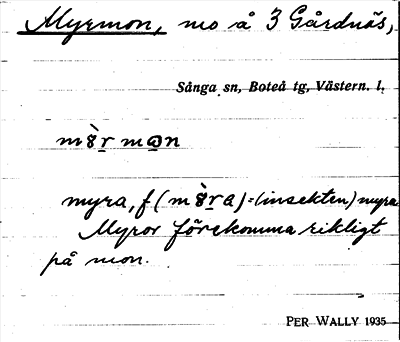 Myrmon, mo å 3 Gårdnäs,
Sånga sn, Boteå tg, Västern. l.
m ȣ̀ r m ɷ n
myra, f (m ȣ̀ r a) = (insekten) myra
Myror förekomma rikligt
på mon.
PER WALLY 1935